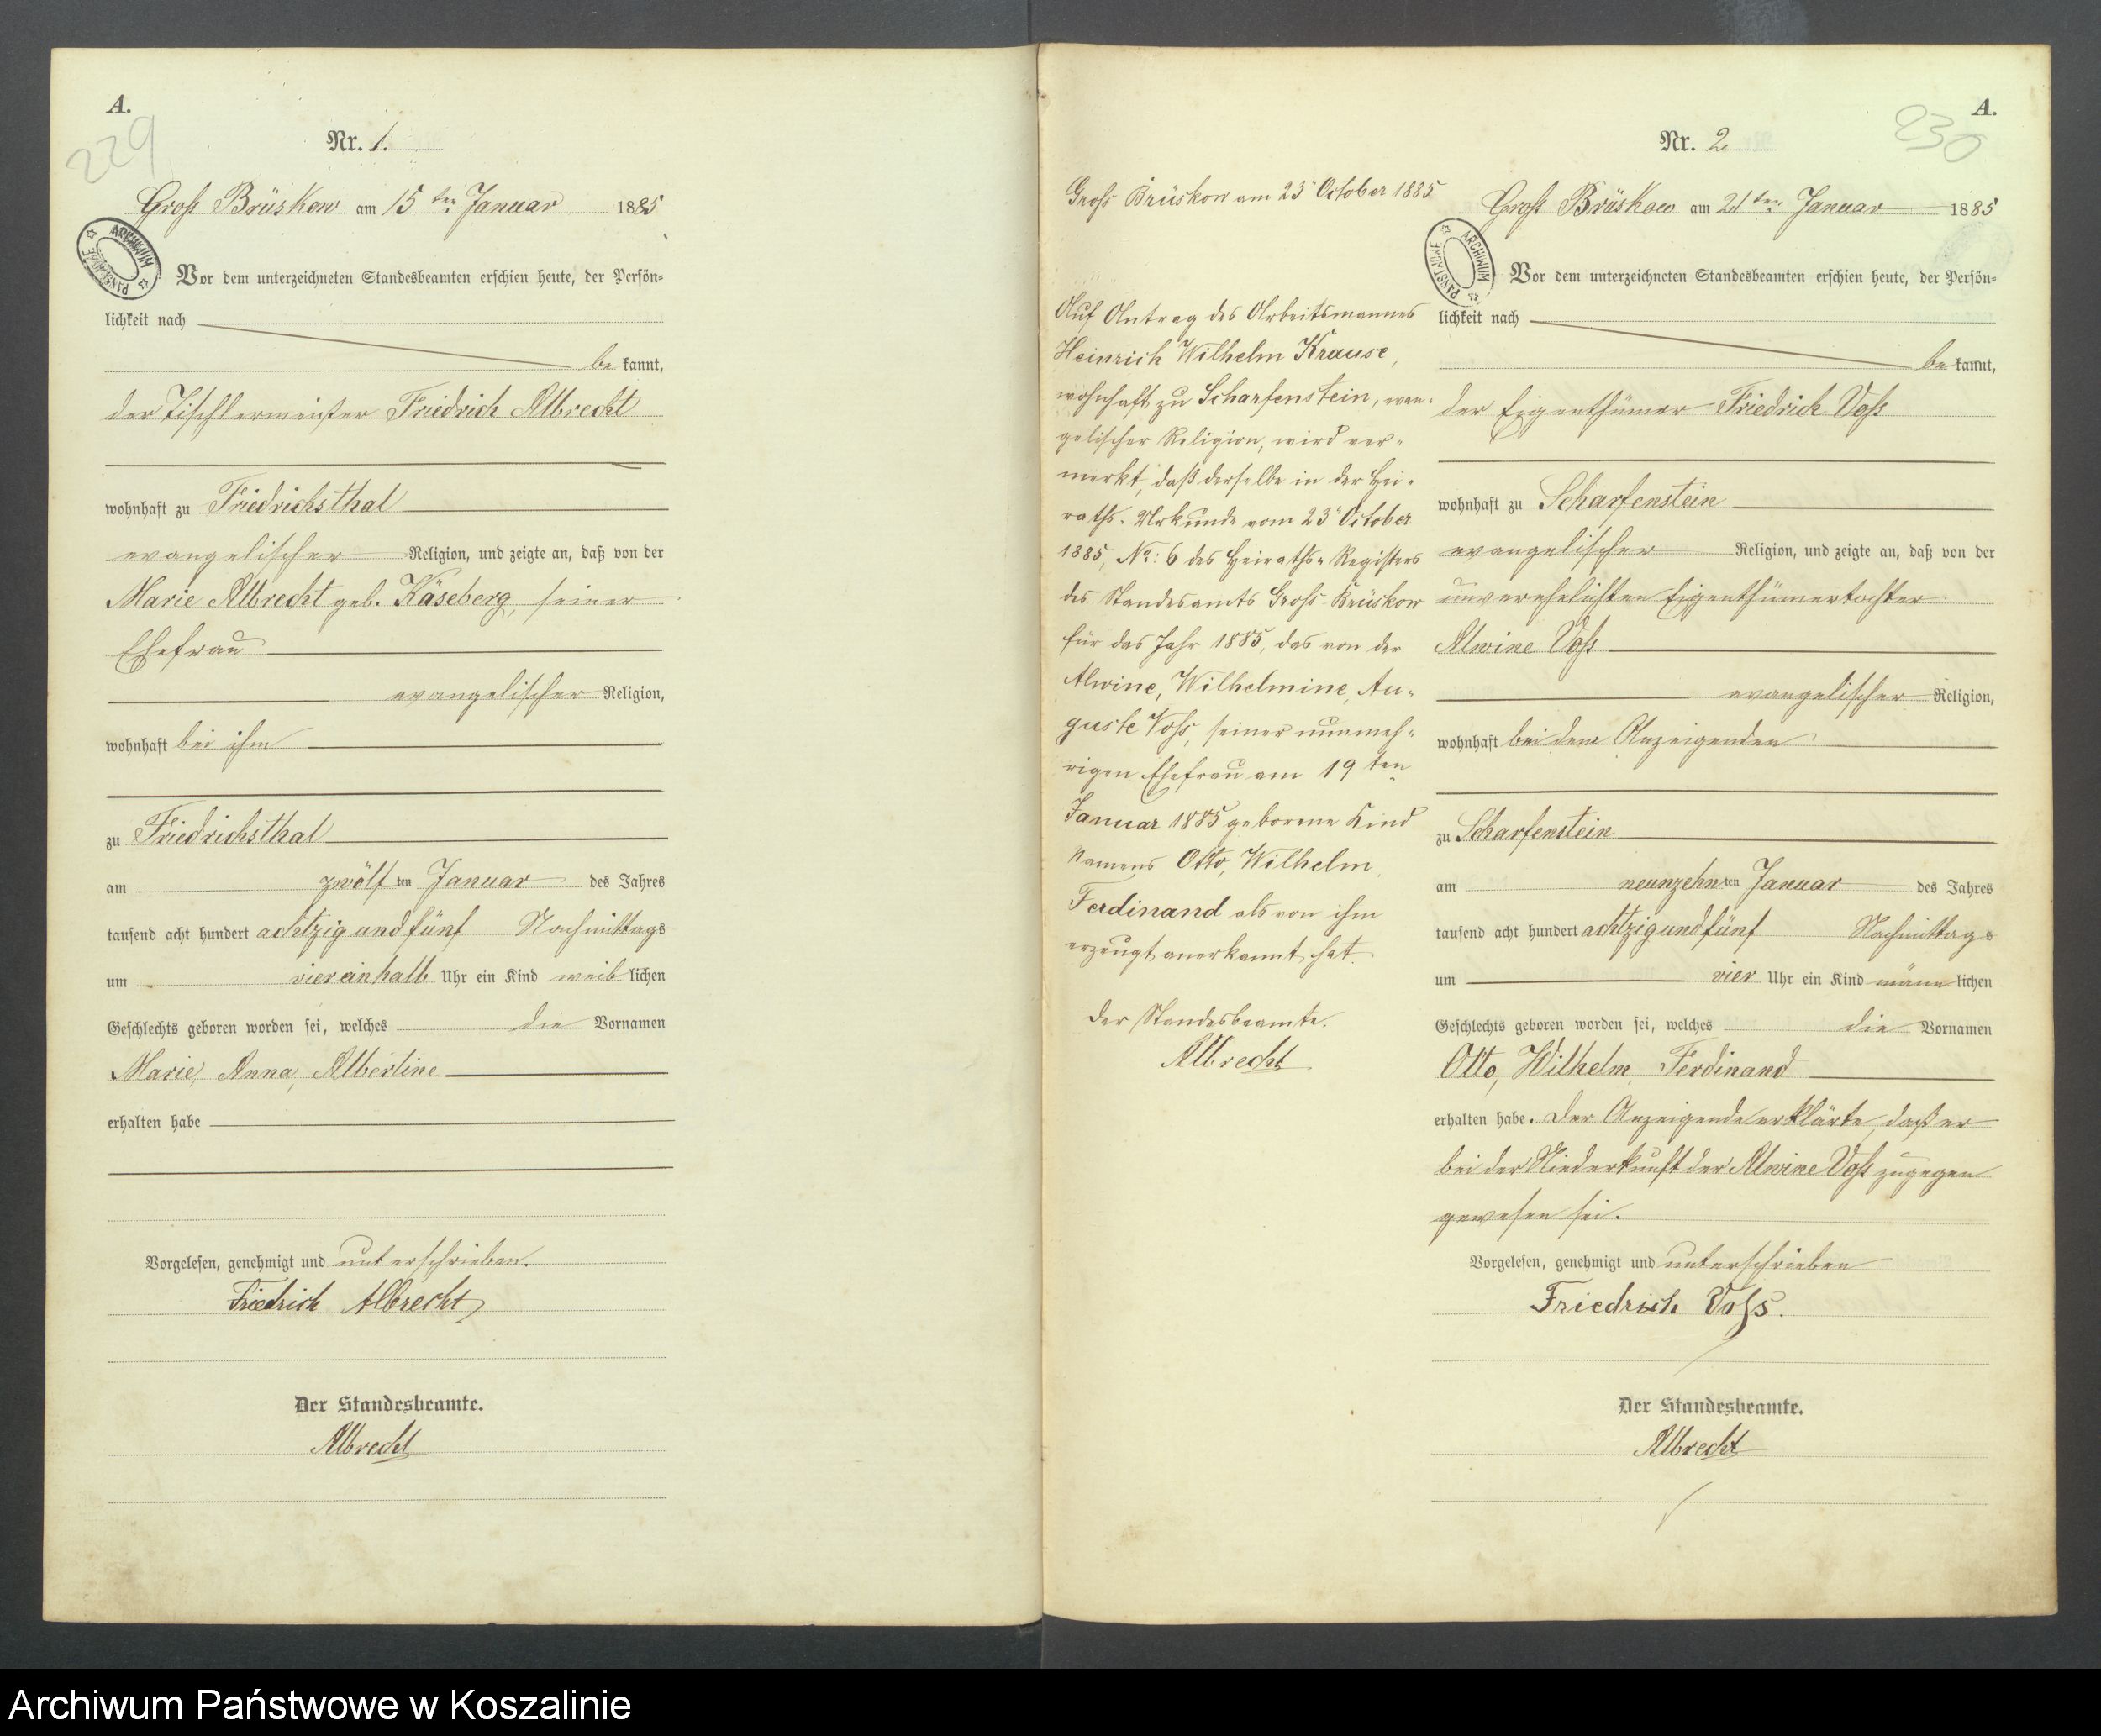 A.
229
Nr. 1.
Groß Brüskow am 15ten Januar 1885
ARCHIWUM PAŃSTWOWE
Vor dem unterzeichneten Standesbeamten erschien heute, der Persön-
lichkeit nach
bekannt,
der Tischlermeister Friedrich Albrecht
wohnhaft zu Friedrichsthal
evangelischer Religion, und zeigte an, daß von der
Marie Albrecht geb. Käseberg, seiner
Ehefrau
evangelischer Religion,
wohnhaft bei ihm
zu Friedrichsthal
am zwölften Januar des Jahres
tausend acht hundert achtzig und fünf Nachmittags
um viereinhalb Uhr ein Kind weiblichen
Geschlechts geboren worden sei, welches die Vornamen
Marie, Anna, Albertine
erhalten habe
Vorgelesen, genehmigt und unterschrieben.
Friedrich Albrecht
Der Standesbeamte.
Albrecht
A.
230
Nr. 2
Groß Brüskow am 21ten Januar 1885
ARCHIWUM PAŃSTWOWE
Vor dem unterzeichneten Standesbeamten erschien heute, der Persön-
lichkeit nach
bekannt,
der Eigenthümer Friedrich Voß
wohnhaft zu Scharfenstein
evangelischer Religion, und zeigte an, daß von der
unverehelichten Eigenthümertochter
Alwine Voß
evangelischer Religion,
wohnhaft bei dem Anzeigenden
zu Scharfenstein
am neunzehnten Januar des Jahres
tausend acht hundert achtzig und fünf Nachmittags
um vier Uhr ein Kind männlichen
Geschlechts geboren worden sei, welches die Vornamen
Otto, Wilhelm, Ferdinand
erhalten habe. Der Anzeigende erklärte, daß er
bei der Niederkunft der Alwine Voß zugegen
gewesen sei.
Vorgelesen, genehmigt und unterschrieben
Friedrich Voss.
Der Standesbeamte.
Albrecht
Gross Brüskow am 23 October 1885
Auf Antrag des Arbeitsmannes
Heinrich Wilhelm Krause,
wohnhaft zu Scharfenstein, evan-
gelischer Religion, wird ver-
merkt, daß derselbe in der Hei-
raths-Urkunde vom 23 October
1885, No: 6 des Heiraths-Registers
des Standesamts Gross-Brüskow
für das Jahr 1885, das von der
Alwine, Wilhelmine, Au-
guste Voss, seiner nunmeh-
rigen Ehefrau am 19ten
Januar 1885 geborene Kind
Namens Otto, Wilhelm,
Ferdinand als von ihm
erzeugt anerkannt hat.
Der Standesbeamte.
Albrecht
Archiwum Państwowe w Koszalinie